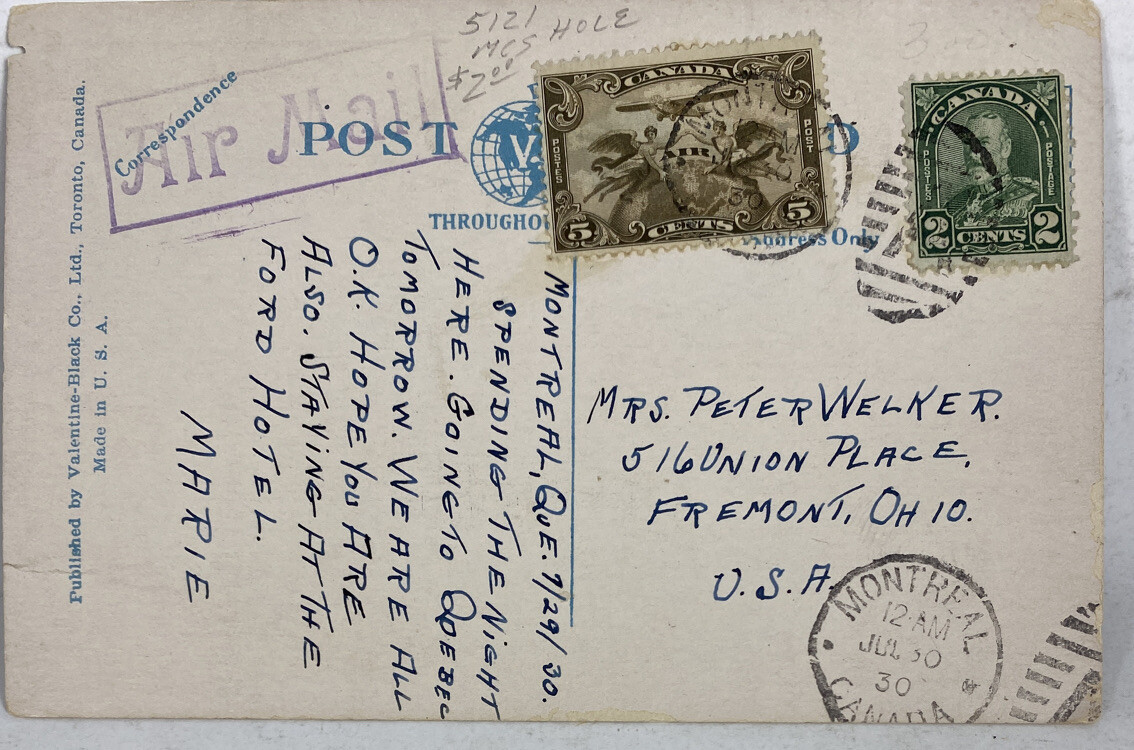 5121 HOLE
MCS
$2.00
Air Mail
Correspondence
POST
D
THROUGHO
Address Only
CANADA
POSTES
POST
AIR
5 CENTS 5
CANADA
POSTES
POSTAGE
2 CENTS 2
30
MONTREAL, QUE. 7/29/30.
SPENDING THE NIGHT
HERE. GOING TO QUEBEC
TOMORROW. WE ARE ALL
O.K. HOPE YOU ARE
ALSO. STAYING AT THE
FORD HOTEL.
MARIE
MRS. PETER WELKER.
516 UNION PLACE,
FREMONT, OHIO.
U.S.A.
MONTREAL
12·AM
JUL 30
30
CANADA
Published by Valentine-Black Co., Ltd., Toronto, Canada.
Made in U. S. A.